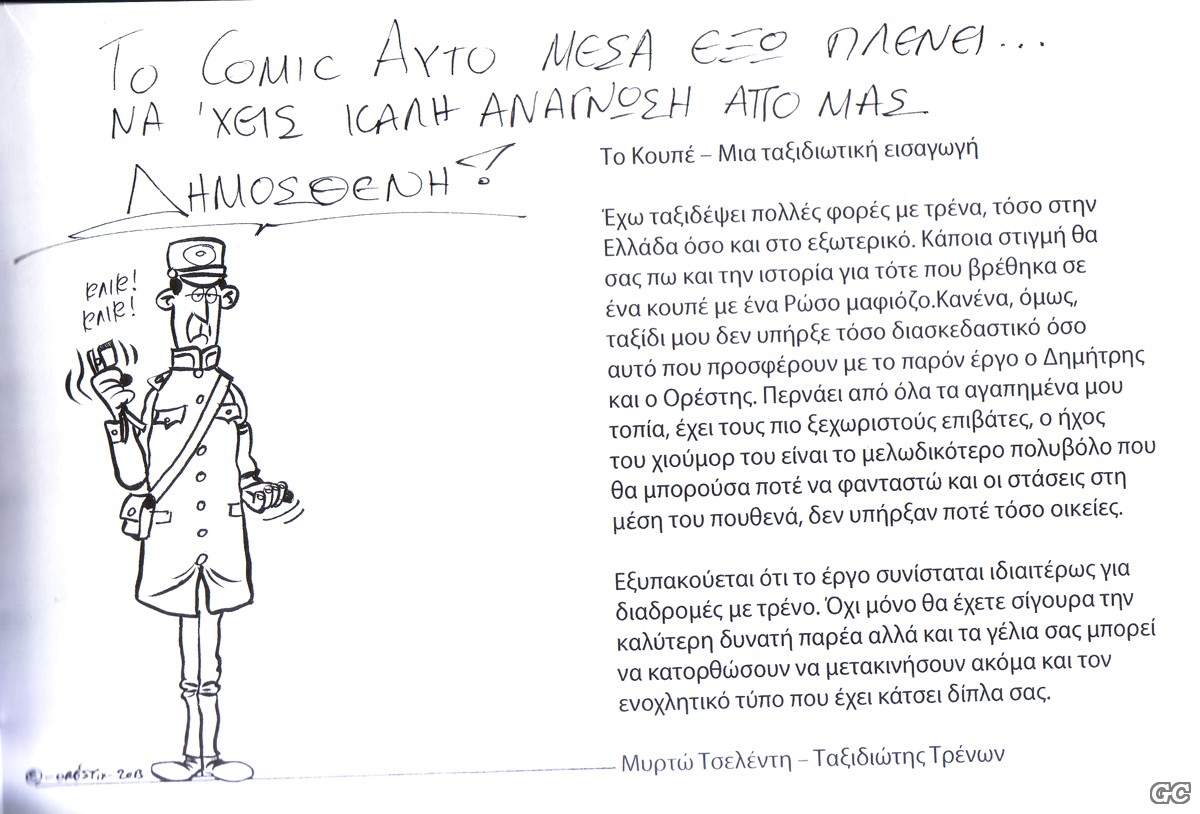 ΤΟ COMIC ΑΥΤΟ ΜΕΣΑ ΕΞΩ ΠΛΕΝΕΙ...
ΝΑ 'ΧΕΙΣ ΚΑΛΗ ΑΝΑΓΝΩΣΗ ΑΠΟ ΜΑΣ
ΔΗΜΟΣΘΕΝΗ!
ΚΛΙΚ!
ΚΛΙΚ!
Το Κουπέ – Μια ταξιδιωτική εισαγωγή
Έχω ταξιδέψει πολλές φορές με τρένα, τόσο στην
Ελλάδα όσο και στο εξωτερικό. Κάποια στιγμή θα
σας πω και την ιστορία για τότε που βρέθηκα σε
ένα κουπέ με ένα Ρώσο μαφιόζο.Κανένα, όμως,
ταξίδι μου δεν υπήρξε τόσο διασκεδαστικό όσο
αυτό που προσφέρουν με το παρόν έργο ο Δημήτρης
και ο Ορέστης. Περνάει από όλα τα αγαπημένα μου
τοπία, έχει τους πιο ξεχωριστούς επιβάτες, ο ήχος
του χιούμορ του είναι το μελωδικότερο πολυβόλο που
θα μπορούσα ποτέ να φανταστώ και οι στάσεις στη
μέση του πουθενά, δεν υπήρξαν ποτέ τόσο οικείες.
Εξυπακούεται ότι το έργο συνίσταται ιδιαιτέρως για
διαδρομές με τρένο. Όχι μόνο θα έχετε σίγουρα την
καλύτερη δυνατή παρέα αλλά και τα γέλια σας μπορεί
να κατορθώσουν να μετακινήσουν ακόμα και τον
ενοχλητικό τύπο που έχει κάτσει δίπλα σας.
Μυρτώ Τσελέντη – Ταξιδιώτης Τρένων
2013
GC